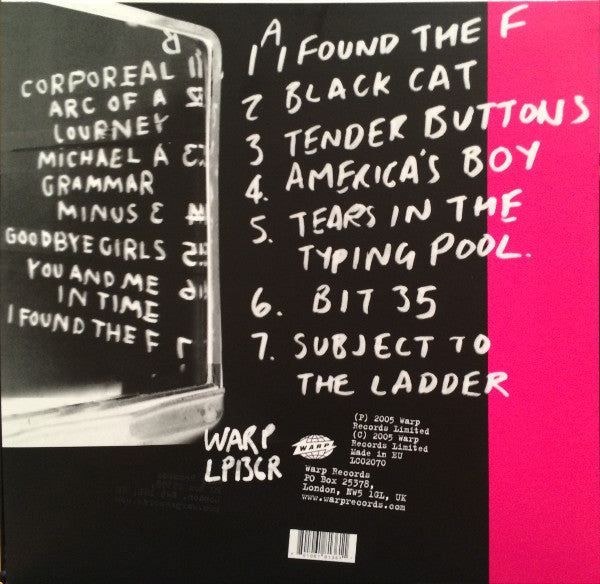 B
CORPOREAL
ARC OF A
LOURNEY
MICHAEL A
GRAMMAR
MINUS 3
GOODBYE GIRLS
YOU AND ME
IN TIME
I FOUND THE F
A
1 I FOUND THE F
2 BLACK CAT
3 TENDER BUTTONS
4. AMERICA'S BOY
5. TEARS IN THE
TYPING POOL.
6. BIT 35
7. SUBJECT TO
THE LADDER
WARP
LP136R
WARP
(P) 2005 Warp
Records Limited
(C) 2005 Warp
Records Limited
Made in EU
LC02070
Warp Records
PO Box 25378,
London, NW5 1GL, UK
www.warprecords.com